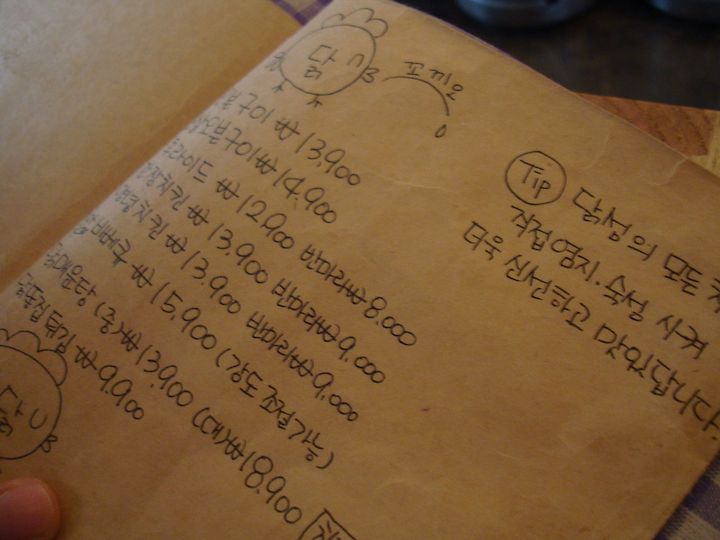 닭
꼬끼오
구이 ₩ 13,900
오븐구이 ₩ 14,900
라이드 ₩ 12,900 반마리₩ 8,000
치킨 ₩ 13,900 반마리₩ 9,000
치킨 ₩ 13,900 반마리₩ 9,000
₩ 15,900 (강도 조절가능)
매운탕 (중)₩13,900 (대)₩18,900
똥집튀김 ₩ 9,900
닭
Tip 닭섬의 모든
직접 염지·숙성 시켜
더욱 신선하고 맛있답니다.